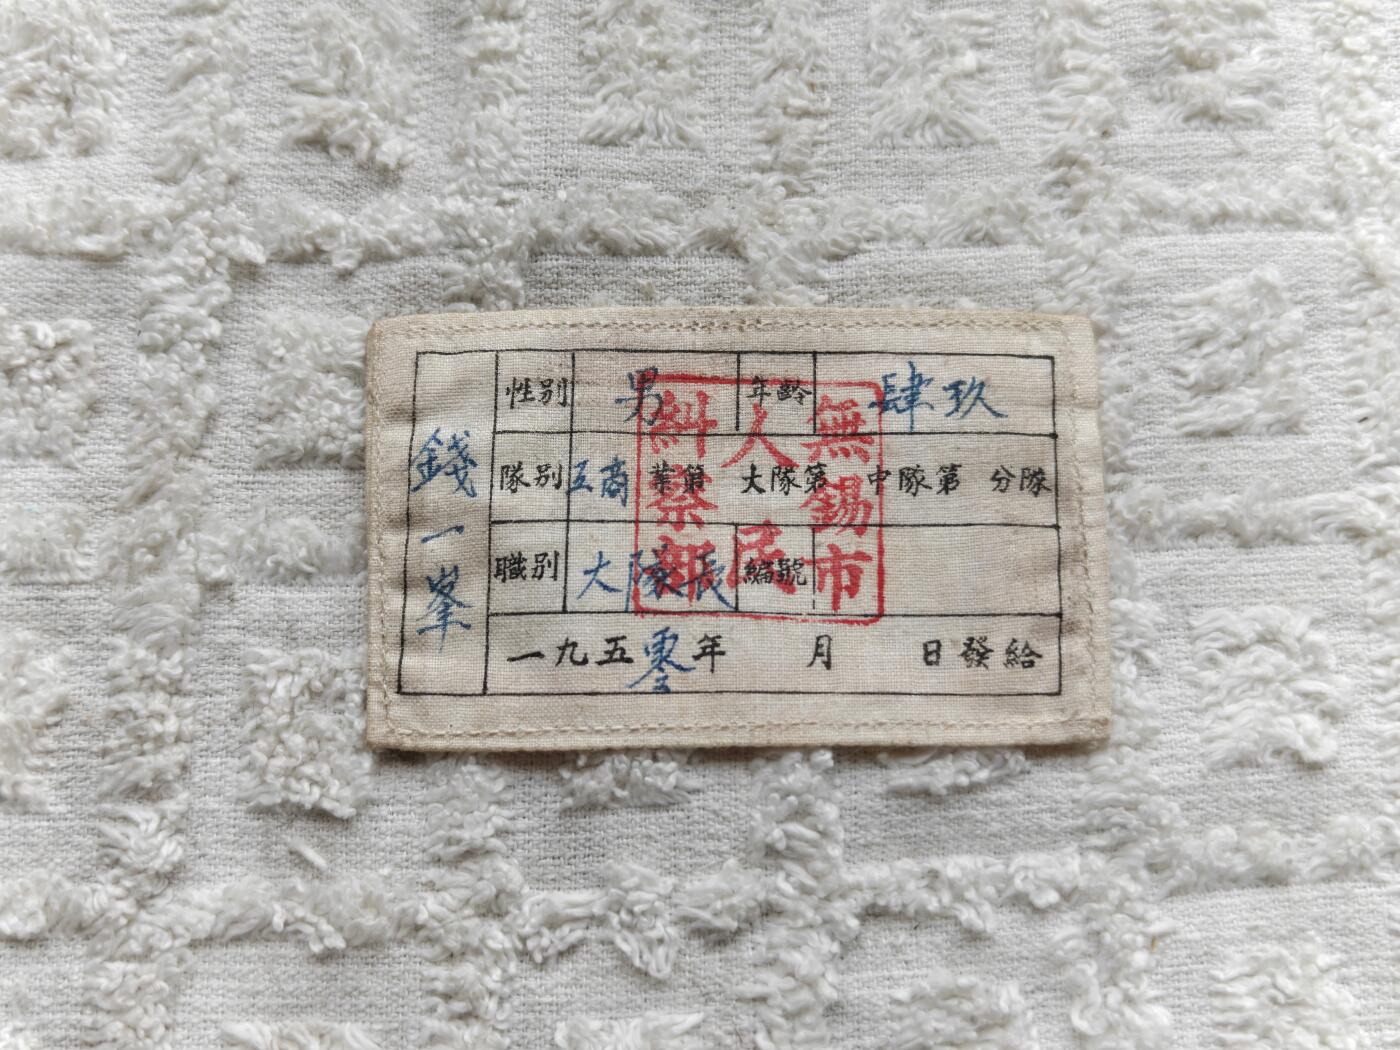 錢一峯
性別 男 年齡 肆玖
隊別 工商業第 大隊第 中隊第 分隊
職別 大隊長 編號
一九五零年 月 日發給
無錫市
人民
糾察部